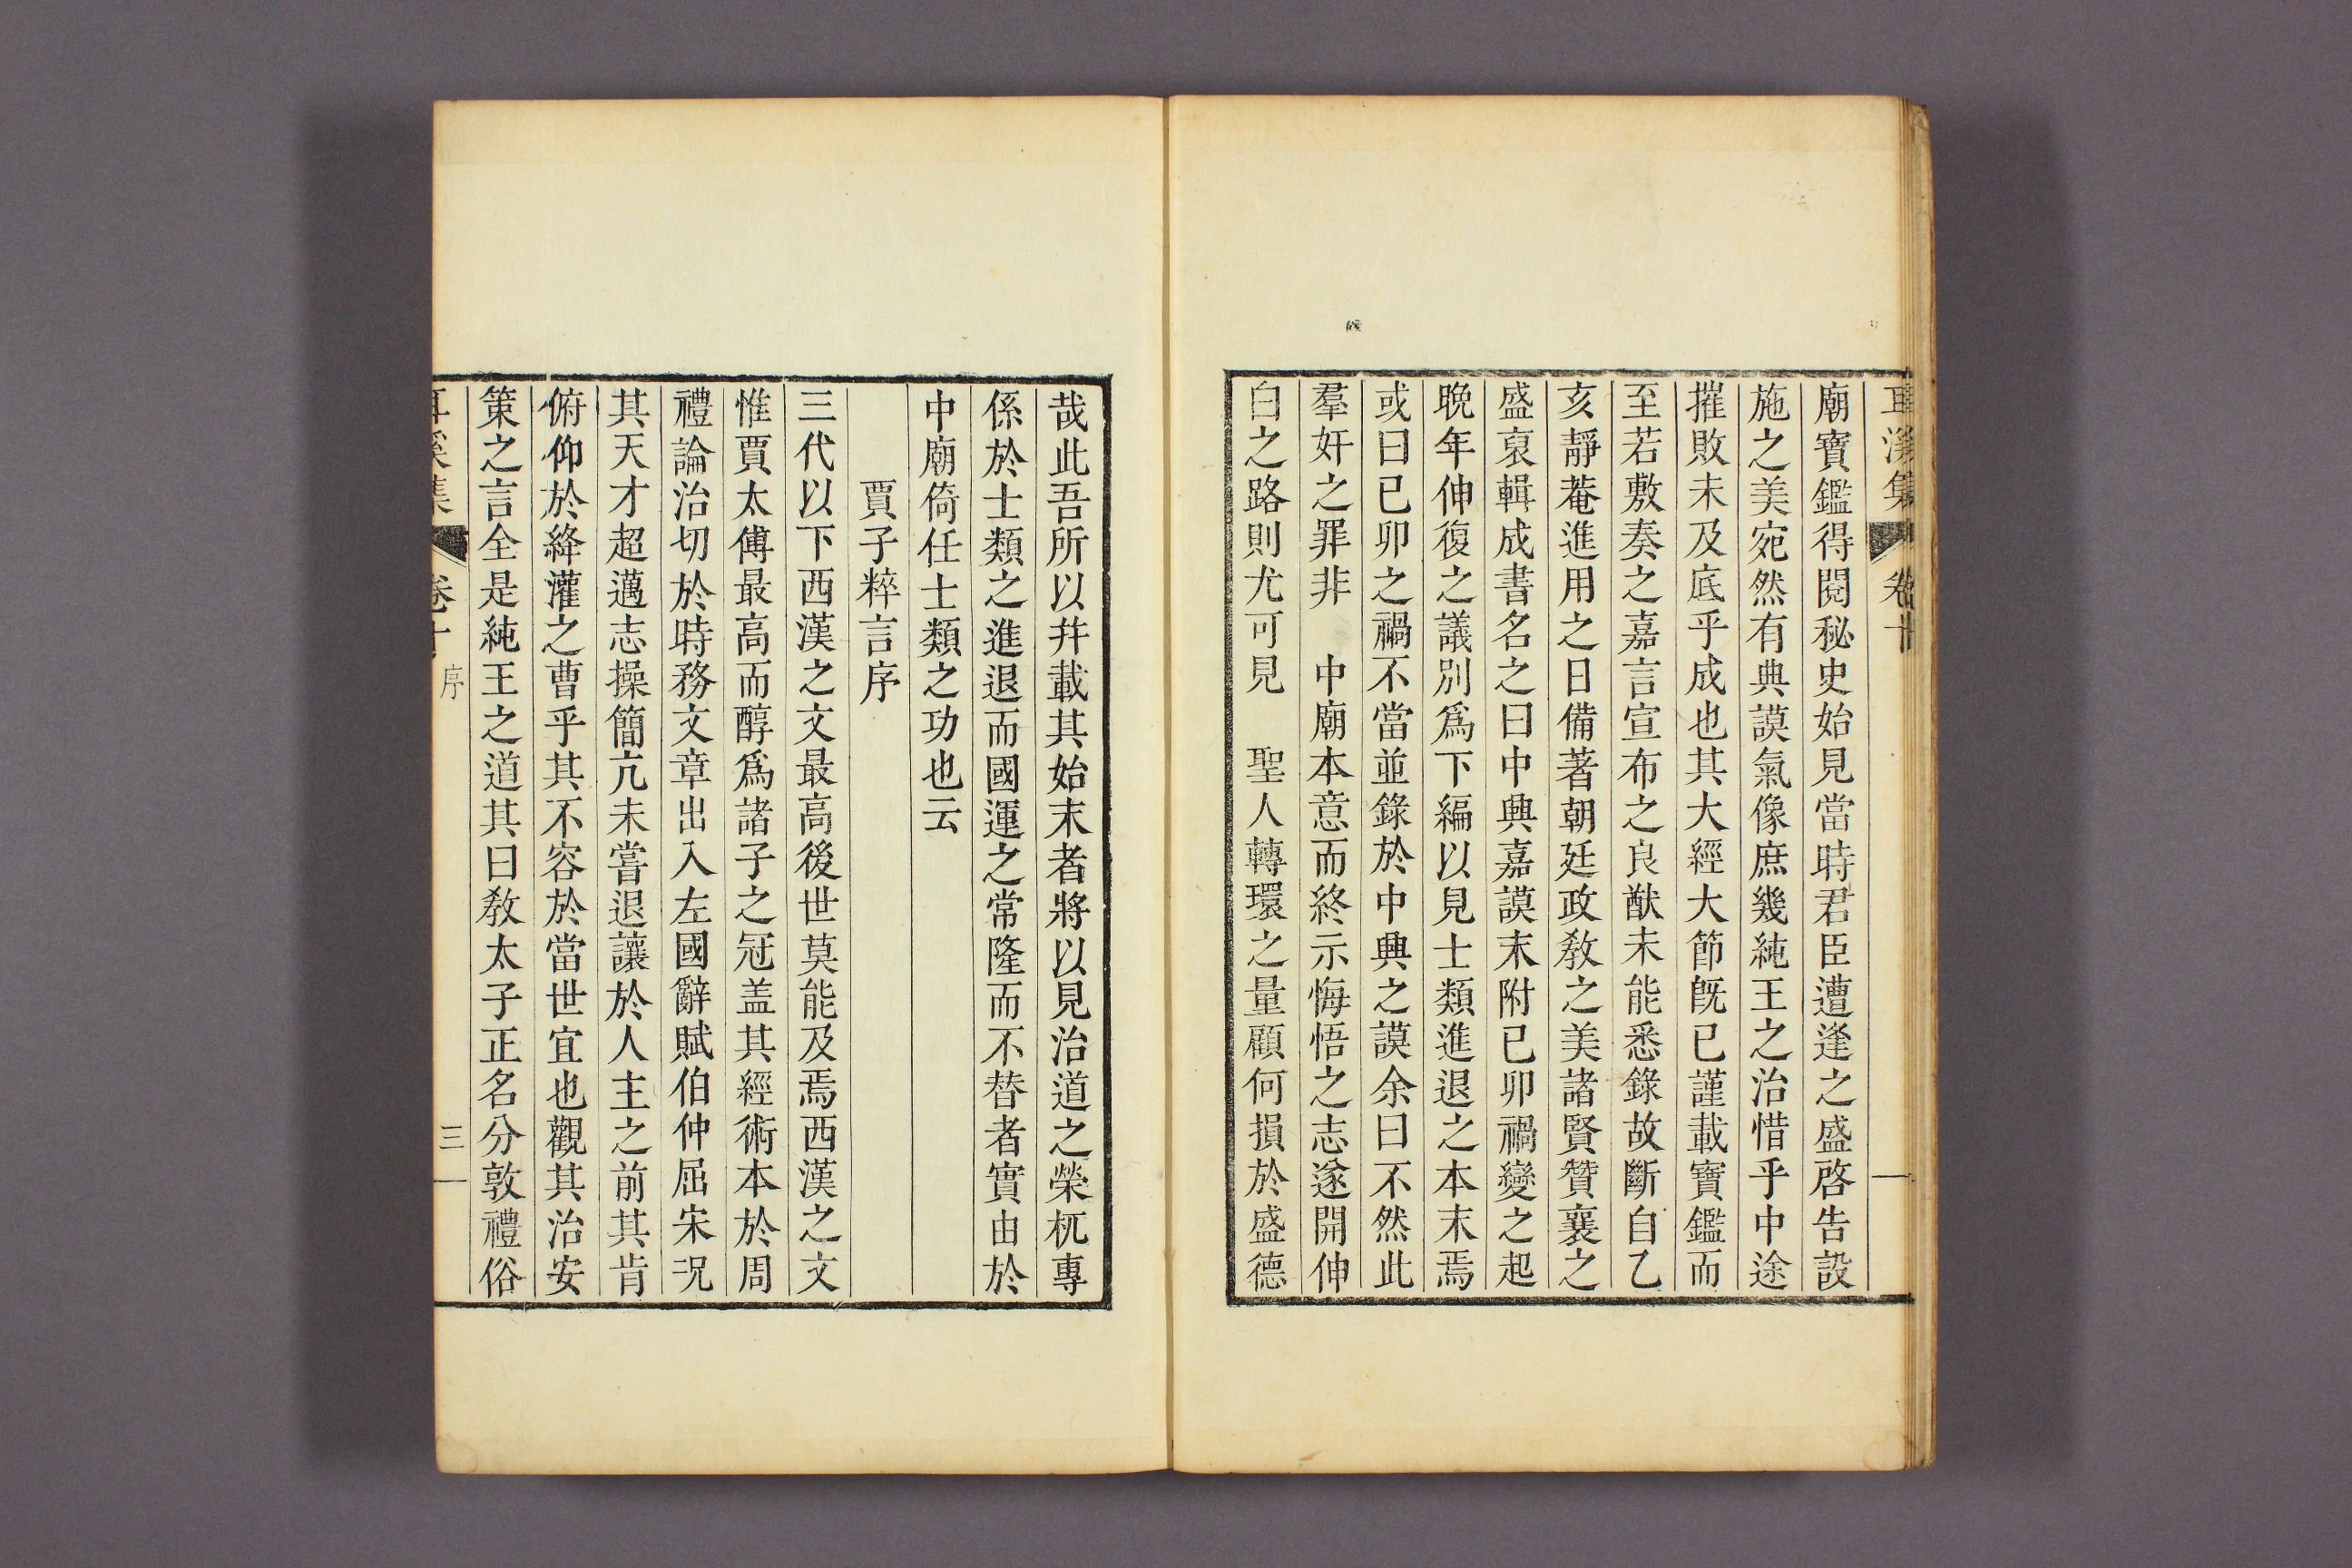 耳溪集 卷十
廟寶鑑得閱秘史始見當時君臣遭逢之盛啓告設
施之美宛然有典謨氣像庶幾純王之治惜乎中途
摧敗未及底乎成也其大經大節旣已謹載寶鑑而
至若敷奏之嘉言宣布之良猷未能悉錄故斷自乙
亥靜菴進用之日備著朝廷政敎之美諸賢贊襄之
盛裒輯成書名之曰中興嘉謨末附已卯禍變之起
晩年伸復之議別爲下編以見士類進退之本末焉
或曰已卯之禍不當並錄於中興之謨余曰不然此
羣奸之罪非 中廟本意而終示悔悟之志遂開伸
白之路則尤可見 聖人轉環之量顧何損於盛德
哉此吾所以幷載其始末者將以見治道之榮杌專
係於士類之進退而國運之常隆而不替者實由於
中廟倚任士類之功也云
賈子粹言序
三代以下西漢之文最高後世莫能及焉西漢之文
惟賈太傅最高而醇爲諸子之冠盖其經術本於周
禮論治切於時務文章出入左國辭賦伯仲屈宋况
其天才超邁志操簡亢未嘗退讓於人主之前其肯
俯仰於絳灌之曹乎其不容於當世宜也觀其治安
策之言全是純王之道其曰敎太子正名分敦禮俗
耳溪集 卷十 序 三